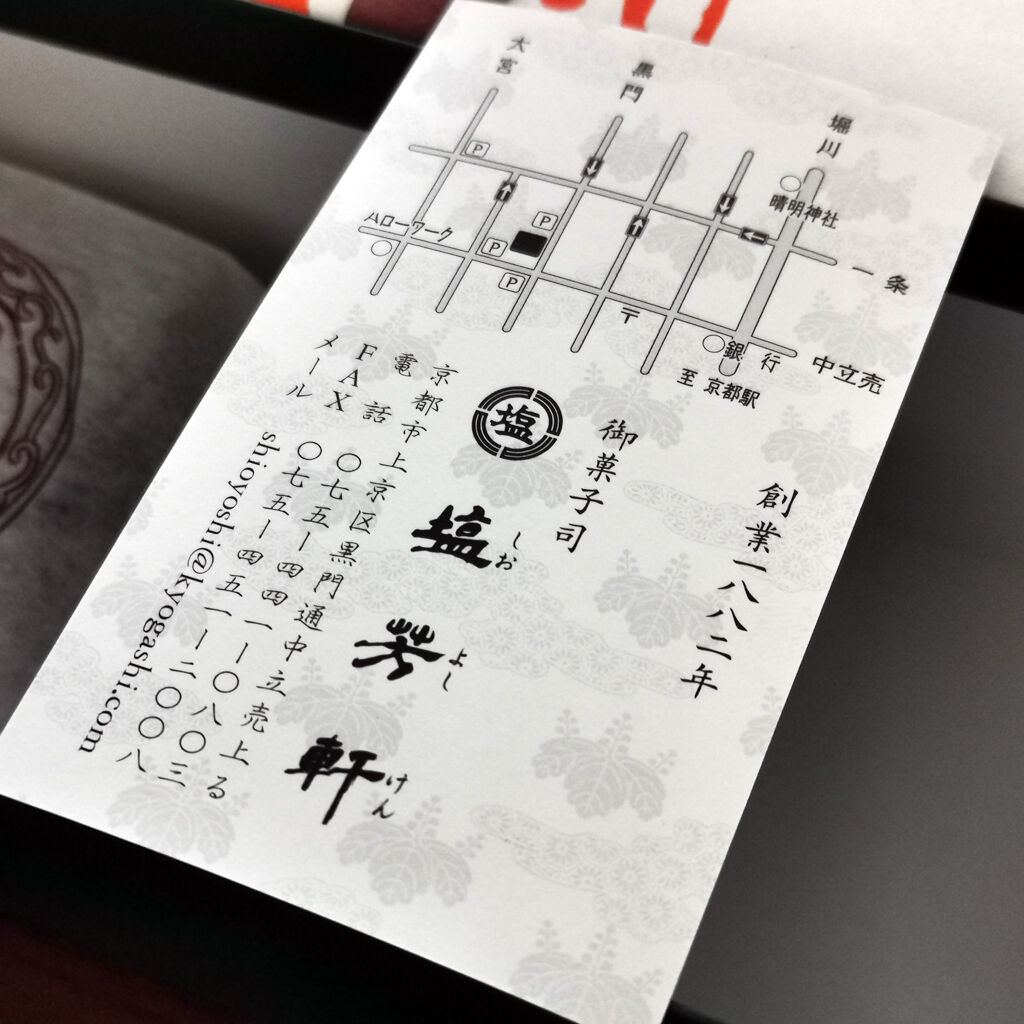 大宮
黒門
堀川
P
晴明神社
ハローワーク
P
P
P
一条
〒
銀行
中立売
至 京都駅
創業一八八二年
御菓子司
塩
塩芳軒
しおよしけん
京都市上京区黒門通中立売上る
電話 〇七五ー四四一ー〇八〇三
FAX 〇七五ー四五一ー二〇〇八
メール shioyoshi@kyogashi.com